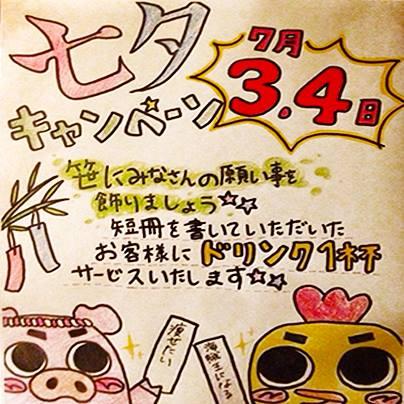 七夕
キャンペーン
7月
3.4日
笹にみなさんの願い事を
飾りましょう☆☆
短冊を書いていただいた
お客様にドリンク1杯
サービスいたします☆☆
痩せたい
海賊王になる